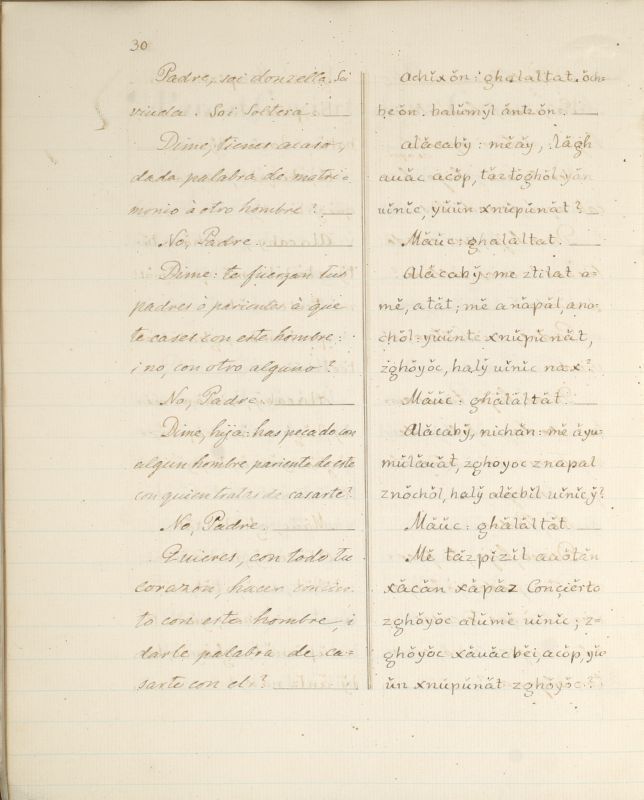 30
Padre, soi donzella. Soi
viuda. Soi Soltera.
Dime, tienes acaso,
dada palabra de matri=
monio à otro hombre?
No, Padre.
Dime: te fuerzan tus
padres ò parientes à que
te cases con este hombre:
i no, con otro alguno?
No, Padre.
Dime, hija: has pecado con
algun hombre, pariente de este
con quien tratas de casarte?
No, Padre.
Quieres, con todo tu
corazon, hacer concier=
to con este hombre, i
darle palabra de ca=
sarte con el?
achĭxŏn: ghalaltat. ŏch=
heŏn. balŭmy̆l ăntzŏn.
alăcaby̆: mĕăy, lăgh
auăc acŏp, tăztŏghŏl yăn
uĭnĭc, yŭŭn xnŭpŭnăt?
Măŭc: ghalăltat.
Alăcaby̆: me ztilat a=
mĕ, atăt; mĕ anăpăl, ano=
chŏl: yŭŭnte xnŭpŭnăt,
zghŏyŏc, haly̆ uĭnĭc nax?
Măŭc: ghălăltăt.
Alăcaby̆, nichăn: mĕ ăyu=
mŭlăuăt, zghoyoc znapal
znŏchŏl, haly̆ alĕcbĭl uĭnĭcy̆?
Măŭc: ghălăltăt.
Mĕ tăzpĭzĭl aaŏtăn
xăcăn xăpăz Conciĕrto
zghŏyŏc alŭmĕ uĭnĭc; z=
ghŏyŏc xăuăcbĕi, acŏp, yŭ=
ŭn xnŭpŭnăt zghŏyŏc?